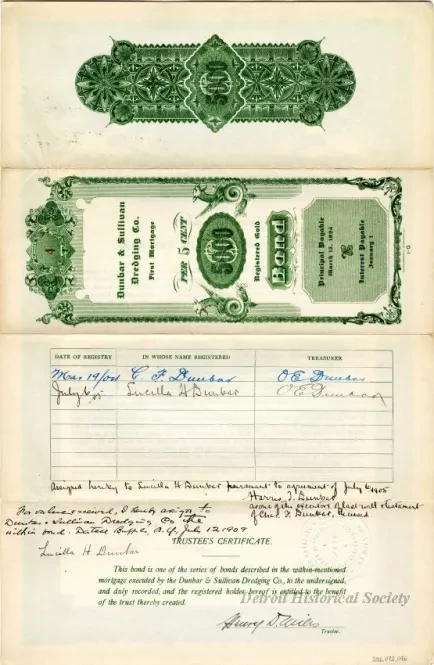 5000
Dunbar & Sullivan
Dredging Co.
First Mortgage
PER 5 CENT
5000
Registered Gold
Bond
Principal Payable
March 15, 1924
&
Interest Payable
January 1
DATE OF REGISTRY IN WHOSE NAME REGISTERED TREASURER
Mar 19/04 C. F. Dunbar O E Dunbar
July 6/05 Lucilla H Dunbar O E Dunbar
Assigned hereby to Lucilla H Dunbar pursuant to agreement of July 6 1905
Harris T. Dunbar
as one of the executors of last will & testament
of Chas. F. Dunbar, deceased
For value received, I hereby assign to
Dunbar & Sullivan Dredging Co the
within bond. Dated Buffalo, N.Y. July 12 1909
Lucilla H Dunbar
TRUSTEE'S CERTIFICATE.
This bond is one of the series of bonds described in the within-mentioned
mortgage executed by the Dunbar & Sullivan Dredging Co., to the undersigned,
and duly recorded, and the registered holder hereof is entitled to the benefit
of the trust thereby created.
Henry D.
Trustee.
Detroit Historical Society